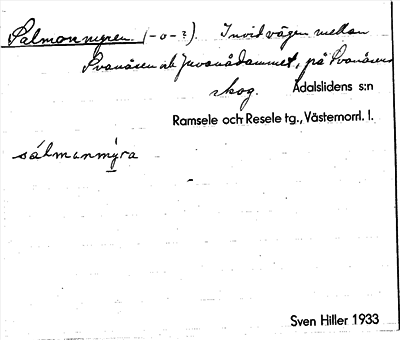 Salmonmyren (-o-?). Invid vägen mellan
Svanåsen och Juvanådammet, på Svanåsens
skog. Ådalslidens s:n
Ramsele och Resele tg., Västernorrl. l.
sálmanmýra
Sven Hiller 1933